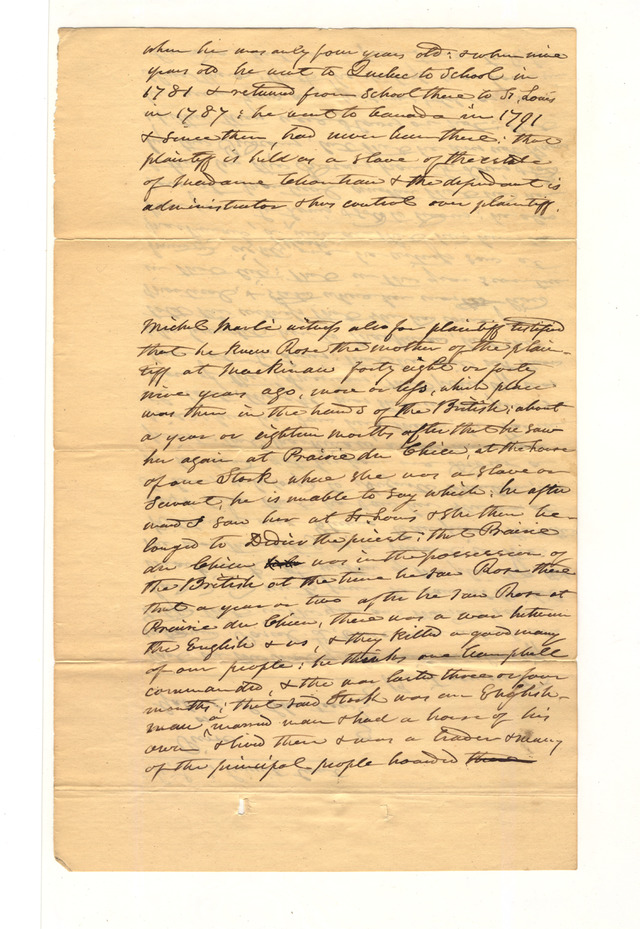 when he was only four years old: & when nine
years old he went to Quebec to School in
1781 & returned from School there to St. Louis
in 1787; he went to Canada in 1791
& since then, had never been there; that
plaintiff is held as a slave of the estate
of Madame Chouteau & the defendant is
administrator & has control over plaintiff.
Michel Marli witness also for plaintiff testified
that he knew Rose the mother of the plain-
tiff at Mackinaw forty eight or forty
nine years ago, more or less, which place
was then in the hands of the British; about
a year or eighteen months after that he saw
her again at Prairie du Chien, at the house
of one Stork where she was a slave or
Servant, he is unable to say which; he after
ward saw her at St. Louis & she then be-
longed to Didier the priest; that Prairie
du Chien was in the possession of
the British at the time he saw Rose there
that a year or two after he saw Rose at
Prairie du Chien, there was a war between
the English & us, & they killed a good many
of our people; he thinks one Campbell
commanded, & the war lasted three or four
months; that said Stork was an English-
man a married man & had a house of his
own & lived there & was a trader & many
of the principal people boarded there